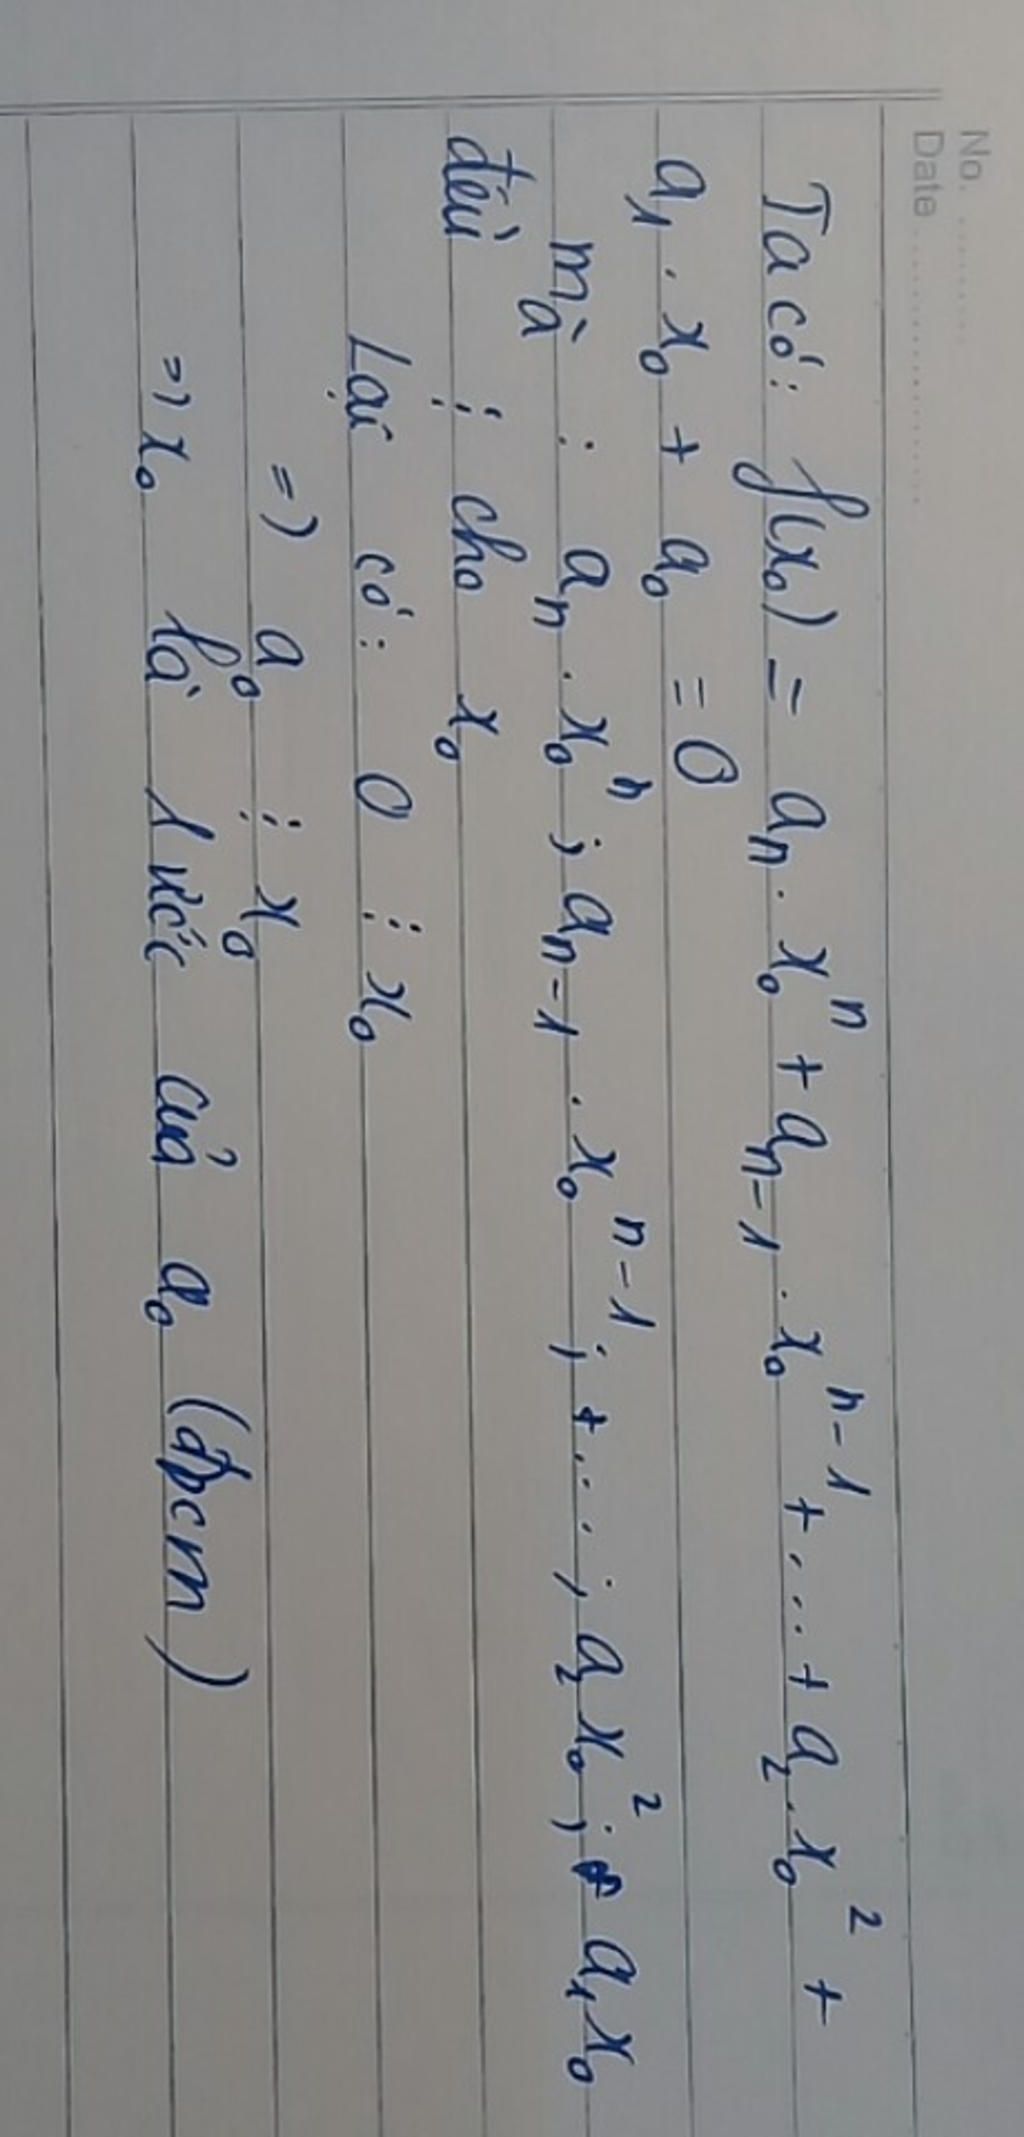 No. ..........
Date ....................
Ta có: f(x₀) = aₙ . x₀ⁿ + aₙ₋₁ . x₀ⁿ⁻¹ + ... + a₂ . x₀² +
a₁ . x₀ + a₀ = 0
mà : aₙ . x₀ⁿ ; aₙ₋₁ . x₀ⁿ⁻¹ ; + ... ; a₂ x₀² ; a₁ x₀
đều ⋮ cho x₀
Lại có: 0 ⋮ x₀
=) a₀ ⋮ x₀
=) x₀ là 1 ước của a₀ (đpcm)